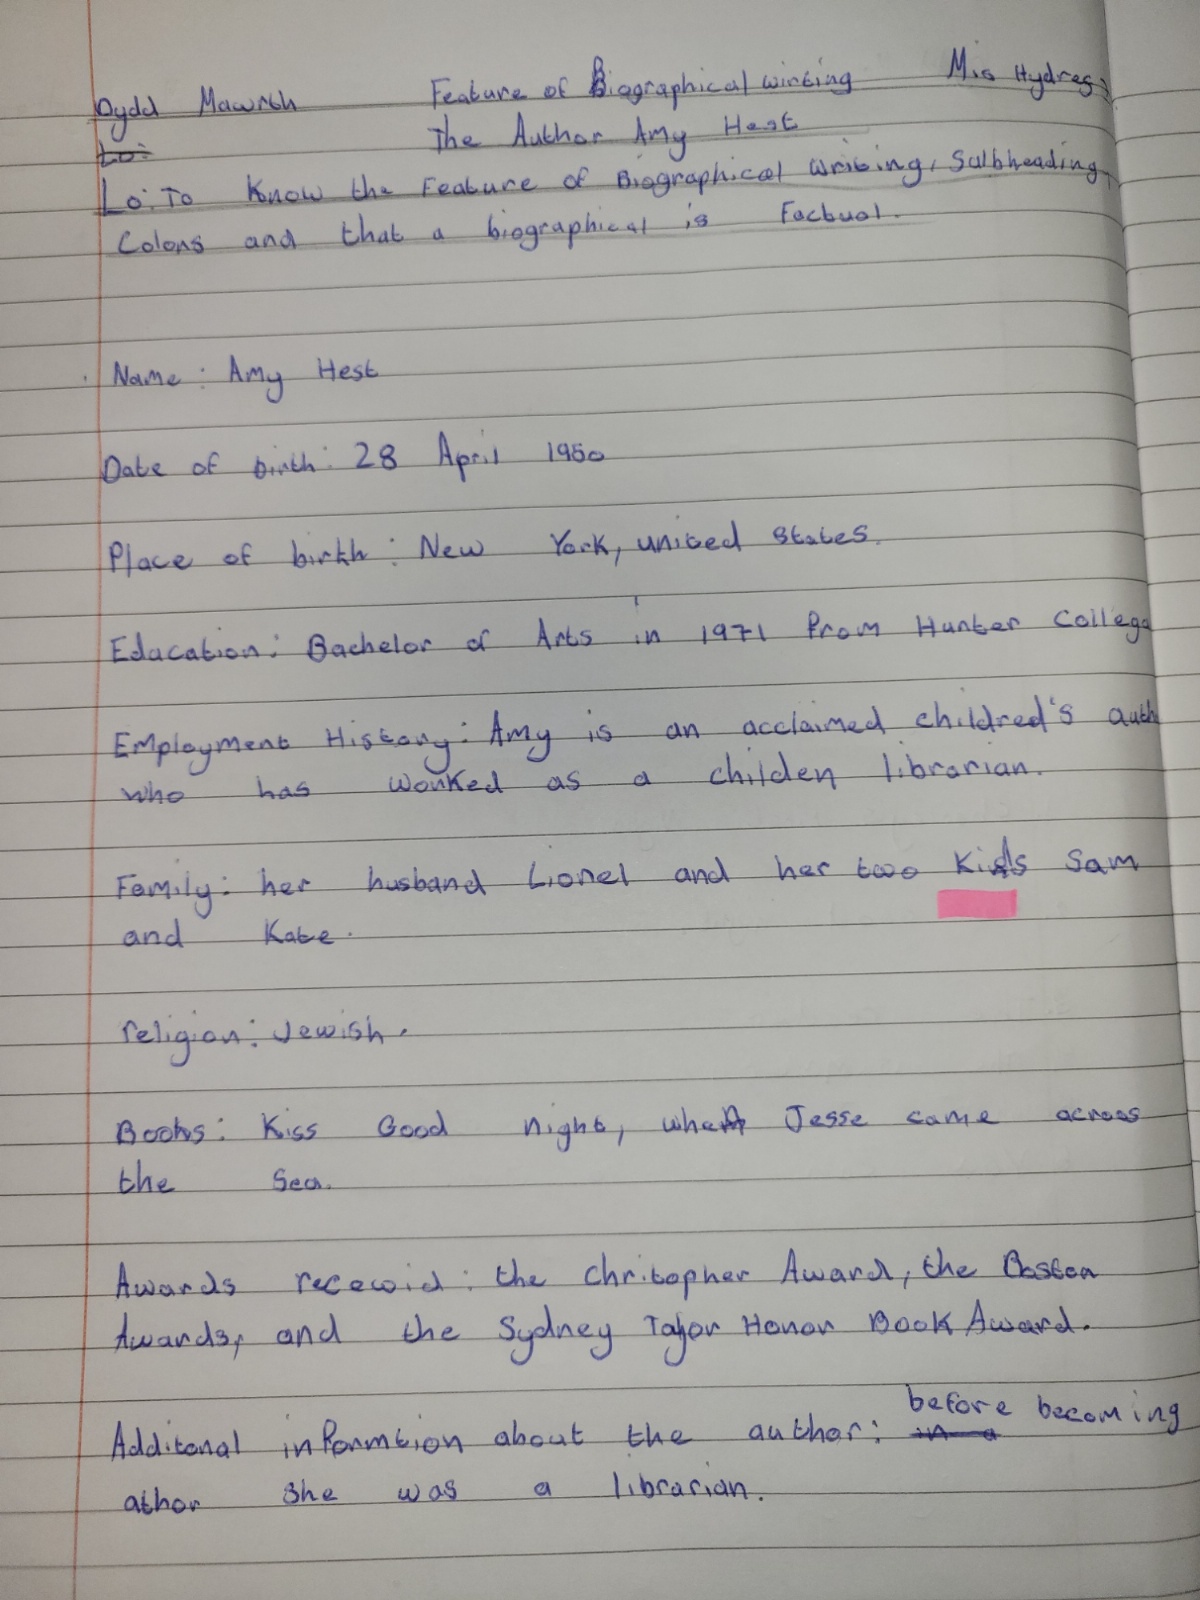 Dydd Mawrth Feature of Biographical wirting Mis Hydreg
The Author Amy Hest
Lo:
Lo: To Know the Feature of Biographical Writing, Subheading,
Colons and that a biographical is Factual.
Name: Amy Hest
Date of birth: 28 April 1950
Place of birth: New York, united States.
Edacation: Bachelor of Arts in 1971 from Hunter College
Employment History: Amy is an acclaimed childred's auth
who has worked as a childen librarian.
Family: her husband Lionel and her two Kids Sam
and Kate.
religion: Jewish.
Books: Kiss Good night, when Jesse came across
the Sea.
Awards recewid: the Chritopher Award, the Boston
Awards, and the Sydney Taylor Honor Book Award.
Additonal informtion about the author: in a before becoming
athor she was a librarian.